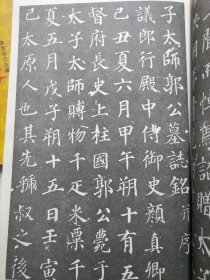 子太師郭公墓誌銘并序
議郎行殿中侍御史顏真卿
己丑夏六月甲午朔十有五
督府長史上柱國郭公薨于
太子太師賻物千疋米粟千
夏五月戊子朔十五日壬寅
己太原人也其先虢叔之後